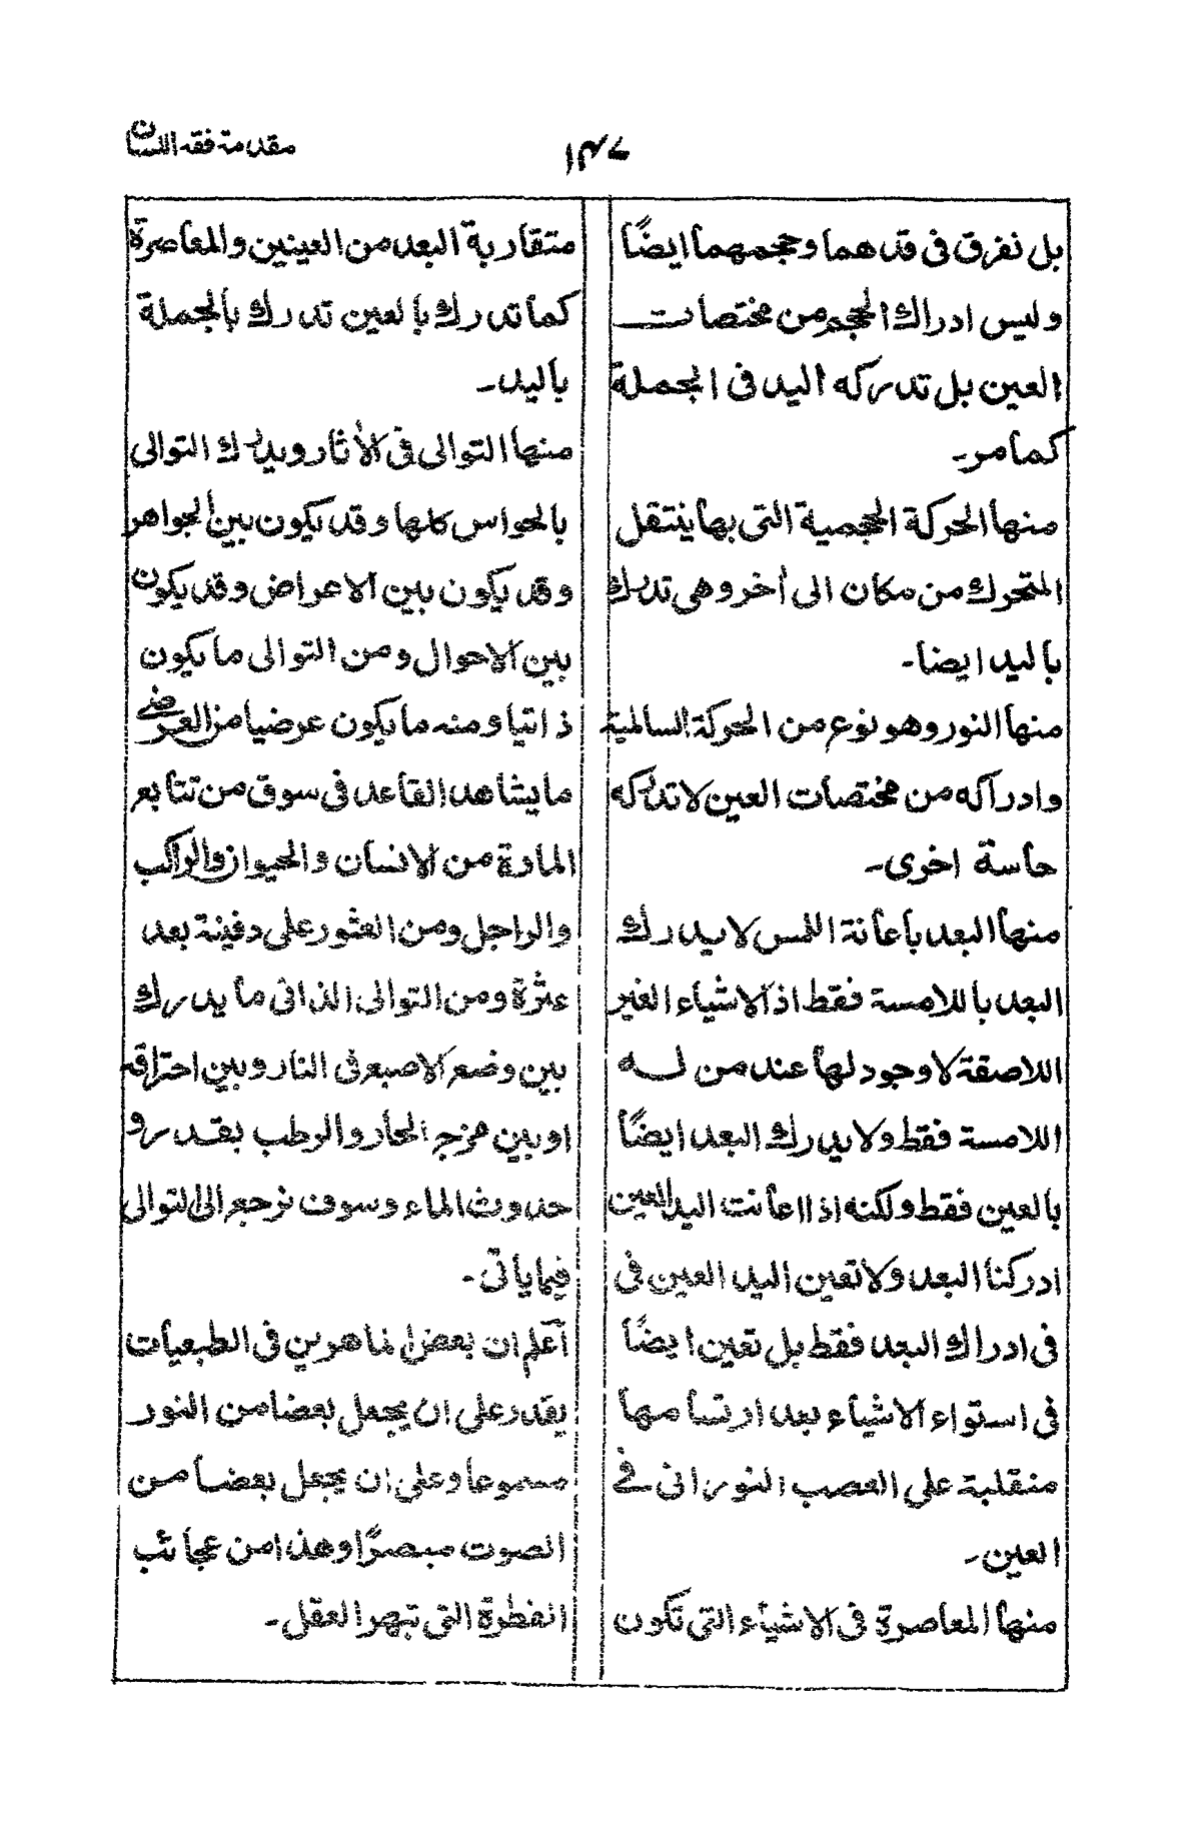 مقدمة فقه اللسان
١٣٤٧
بل نفرق فى قدهما وحجمهما ايضًا
وليس ادراك الحجم من مختصات
العين بل تدركه اليد فى الجملة
كما مر۔
منها الحركة الحجمية التى بها ينتقل
المتحرك من مكان الى أخر وهى تدرك
باليد ايضا۔
منها النور وهو نوع من الحركة السالمية
وادراكه من مختصات العين لا تدركه
حاسة اخرى۔
منها البعد بأعانة اللمس لا يدرك
البعد باللامسة فقط اذ الاشياء الغير
اللاصقة لا وجود لها عند من له
اللامسة فقط ولا يدرك البعد ايضًا
بالعين فقط ولكنه اذا اعانت اليد العين
ادركنا البعد ولا تعين اليد العين فى
فى ادراك البعد فقط بل تعين ايضًا
فى استواء الاشياء بعد ارتسامها
منقلبة على العصب النورانى فے
العين۔
منها المعاصرة فى الاشياء التى تكون
متقاربة البعد من العينين والمعاصرة
كما تدرك بالعين تدرك بالجملة
باليد۔
منها التوالى فى الأثار ويدرك التوالى
بالحواس كلها وقد يكون بين الجواهر
وقد يكون بين الاعراض وقد يكون
بين الاحوال ومن التوالى ما يكون
ذاتيا ومنه ما يكون عرضيا من العرضے
ما يشاهد القاعد فى سوق من تتابع
المادة من الانسان والحيوان والراكب
والراجل ومن العثور على دفينة بعد
عثرة ومن التوالى الذاتى ما يدرك
بين وضع الاصبع فى النار وبين احتراقه
او بين مزج الحار والرطب بقدر و
حدوث الماء وسوف نرجع الى التوالى
فيما ياتى۔
أعلم ان بعض الماهرين فى الطبعيات
يقدر على ان يجعل بعضا من النور
مسموعا وعلى ان يجعل بعضا من
الصوت مبصرًا وهذا من عجائب
الفطرة التى تبهر العقل۔